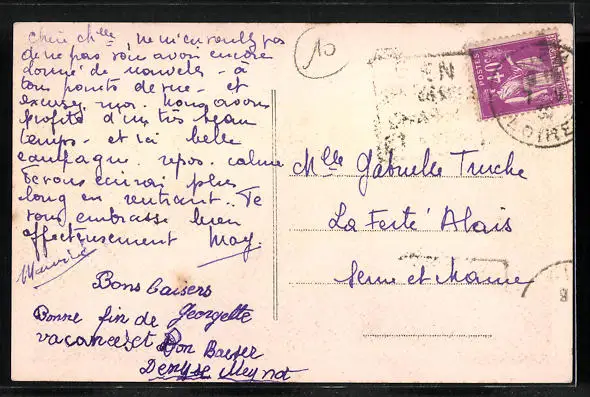 Chère Mlle, ne m'en voulez pas
de ne pas vous avoir encore
donné de nouvelles - à
tous points de vue - et
excusez moi. Nous avons
profité d'un très beau
temps - et ici belle
campagne. repos. calme
Je vous écrirai plus
long en rentrant. Je
vous embrasse bien
affectueusement May.
Bons baisers
Georgette
Bonne fin de
vacances et Bon Baiser
Denyse Meynot
10
EN
POSTES
40c
LOIRE
Mlle Gabrielle Truche
La Ferté Alais
Seine et Marne